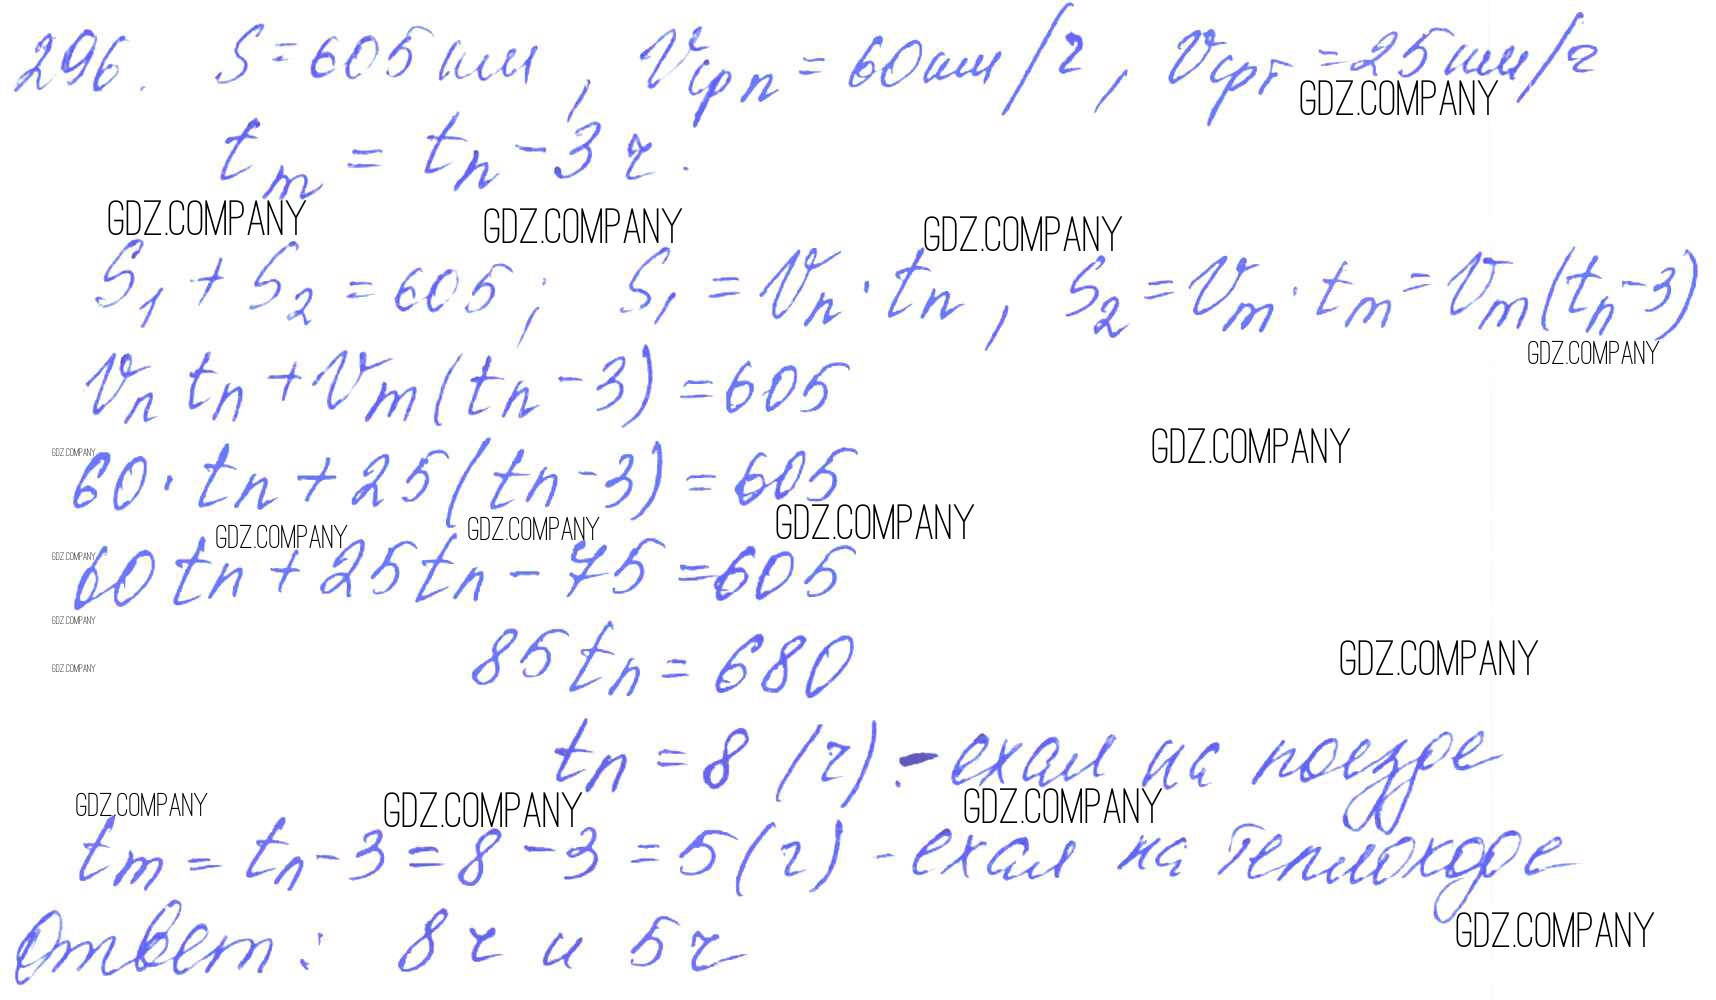 296. S=605 км, Vср п = 60 км/ч, Vср т = 25 км/ч
GDZ.COMPANY
tт = tп - 3 ч.
GDZ.COMPANY GDZ.COMPANY GDZ.COMPANY
S1 + S2 = 605; S1 = Vп · tп, S2 = Vт · tт = Vт (tп - 3)
GDZ.COMPANY
Vп tп + Vт (tп - 3) = 605
GDZ.COMPANY
GDZ.COMPANY
60 · tп + 25 (tп - 3) = 605
GDZ.COMPANY GDZ.COMPANY GDZ.COMPANY
GDZ.COMPANY
60 tп + 25 tп - 75 = 605
GDZ.COMPANY
85 tп = 680
GDZ.COMPANY
GDZ.COMPANY
tп = 8 (ч) - ехал на поезде
GDZ.COMPANY GDZ.COMPANY GDZ.COMPANY
tт = tп - 3 = 8 - 3 = 5 (ч) - ехал на теплоходе
GDZ.COMPANY
Ответ: 8 ч и 5 ч